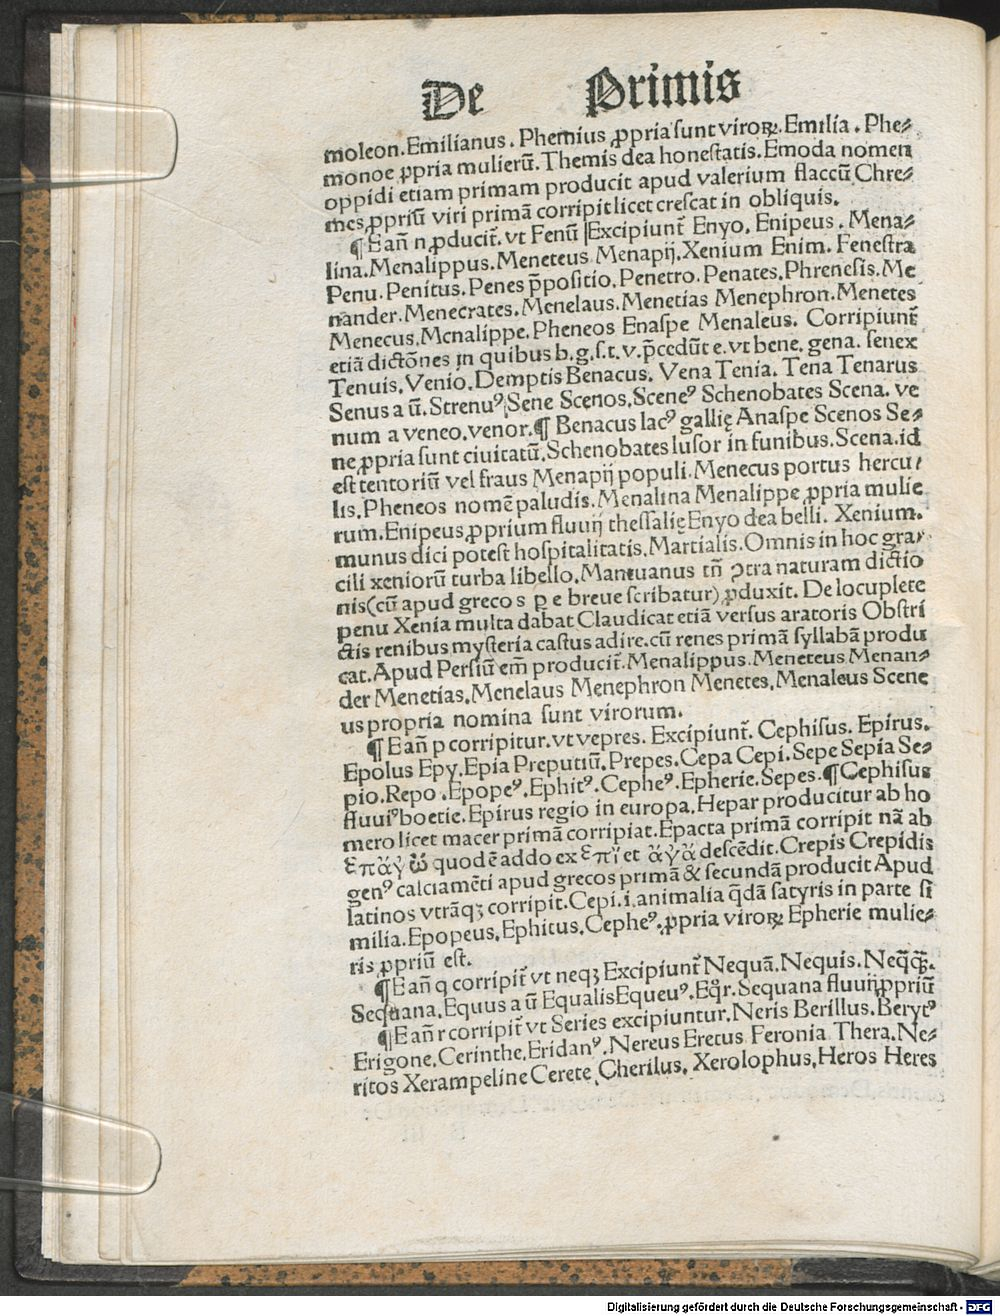 De Primis
moleon.Emilianus. Phemius ꝓpria sunt viroꝝ. Emilia. Phe⸗
monoe ꝓpria mulierū. Themis dea honestatis. Emoda nomen
oppidi etiam primam producit apud valerium flaccū Chre⸗
mes ꝓpriū viri primā corripit licet crescat in obliquis.
¶ E añ n ꝓducit̃. vt Fenū Excipiunt̃ Enyo. Enipeus. Mena⸗
lina. Menalippus. Meneteus Menapij. Xenium Enim. Fenestra
Penu. Penitus. Penes p̄positio. Penetro. Penates. Phrenesis. Me
nander. Menecrates. Menelaus. Menetias Menephron. Menetes
Menecus. Menalippe. Pheneos Enaspe Menaleus. Corripiunt̃
etiā dictōnes in quibus b.g.s.t.v. p̄cedūt e. vt bene. gena. senex
Tenuis. Venio. Demptis Benacus. Vena Tenia. Tena Tenarus
Senus a ū. Strenuꝰ Sene Scenos. Sceneꝰ Schenobates Scena. ve
num a veneo. venor. ¶ Benacus lacꝰ gallię Anaspe Scenos Se⸗
ne ꝓpria sunt ciuitatū. Schenobates lusor in funibus. Scena. id
est tentoriū vel fraus Menapij populi. Menecus portus hercu⸗
lis. Pheneos nomē paludis. Menalina Menalippe ꝓpria mulie
rum. Enipeus ꝓprium fluuij thessalię Enyo dea belli. Xenium.
munus dici potest hospitalitatis. Martialis. Omnis in hoc gra⸗
cili xeniorū turba libello. Mantuanus tñ ꝯtra naturam dictio
nis (cū apud grecos p e breue scribatur) ꝓduxit. De locuplete
penu Xenia multa dabat Claudicat etiā versus aratoris Obstri
ctis renibus mysteria castus adire. cū renes primā syllabā produ
cat. Apud Persiū em̄ producit̃. Menalippus. Meneteus Menan⸗
der Menetias. Menelaus Menephron Menetes. Menaleus Scene
us propria nomina sunt virorum.
¶ E añ p corripitur. vt vepres. Excipiunt̃. Cephisus. Epirus.
Epolus Epy. Epia Preputiū. Prepes. Cepa Cepi. Sepe Sepia Se⸗
pio. Repo. Epopeꝰ. Ephitꝰ. Cepheꝰ. Epherie. Sepes. ¶ Cephisus
fluuiꝰ boetie. Epirus regio in europa. Hepar producitur ab ho
mero licet macer primā corripiat. Epacta primā corripit nā ab
ἐπάγω quod ē addo ex ἐπί et ἄγα descēdit. Crepis Crepidis
genꝰ calciamēti apud grecos primā & secundā producit Apud
latinos vtrāqꝫ corripit. Cepi. i. animalia q̄dā satyris in parte si
milia. Epopeus. Ephitus. Cepheꝰ. ꝓpria viroꝝ Epherie mulie⸗
ris ꝓpriū est.
¶ E añ q corripit̃ vt neqꝫ Excipiunt̃ Nequā. Nequis. Neq̄q̄.
Sequana. Equus a ū Equalis Equeuꝰ. Eq̃r. Sequana fluuij ꝓpriū
¶ E añ r corripit̃ vt Series excipiuntur. Neris Berillus. Berytꝰ
Erigone. Cerinthe. Eridanꝰ. Nereus Eretus Feronia Thera. Ne⸗
ritos Xerampeline Cerete. Cherilus. Xerolophus. Heros Heres
Digitalisierung gefördert durch die Deutsche Forschungsgemeinschaft - DFG